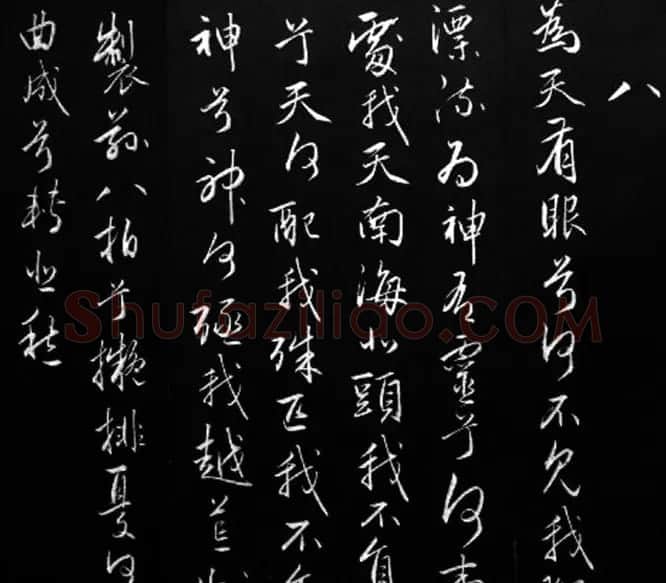 八
為天有眼兮何不見我
漂流為神有靈兮何事
處我天南海北頭我不負
兮天何配我殊匹我不
神兮神何殛我越荒
製茲八拍兮擬排憂何
曲成兮轉悲愁
Shufaziliao.COM